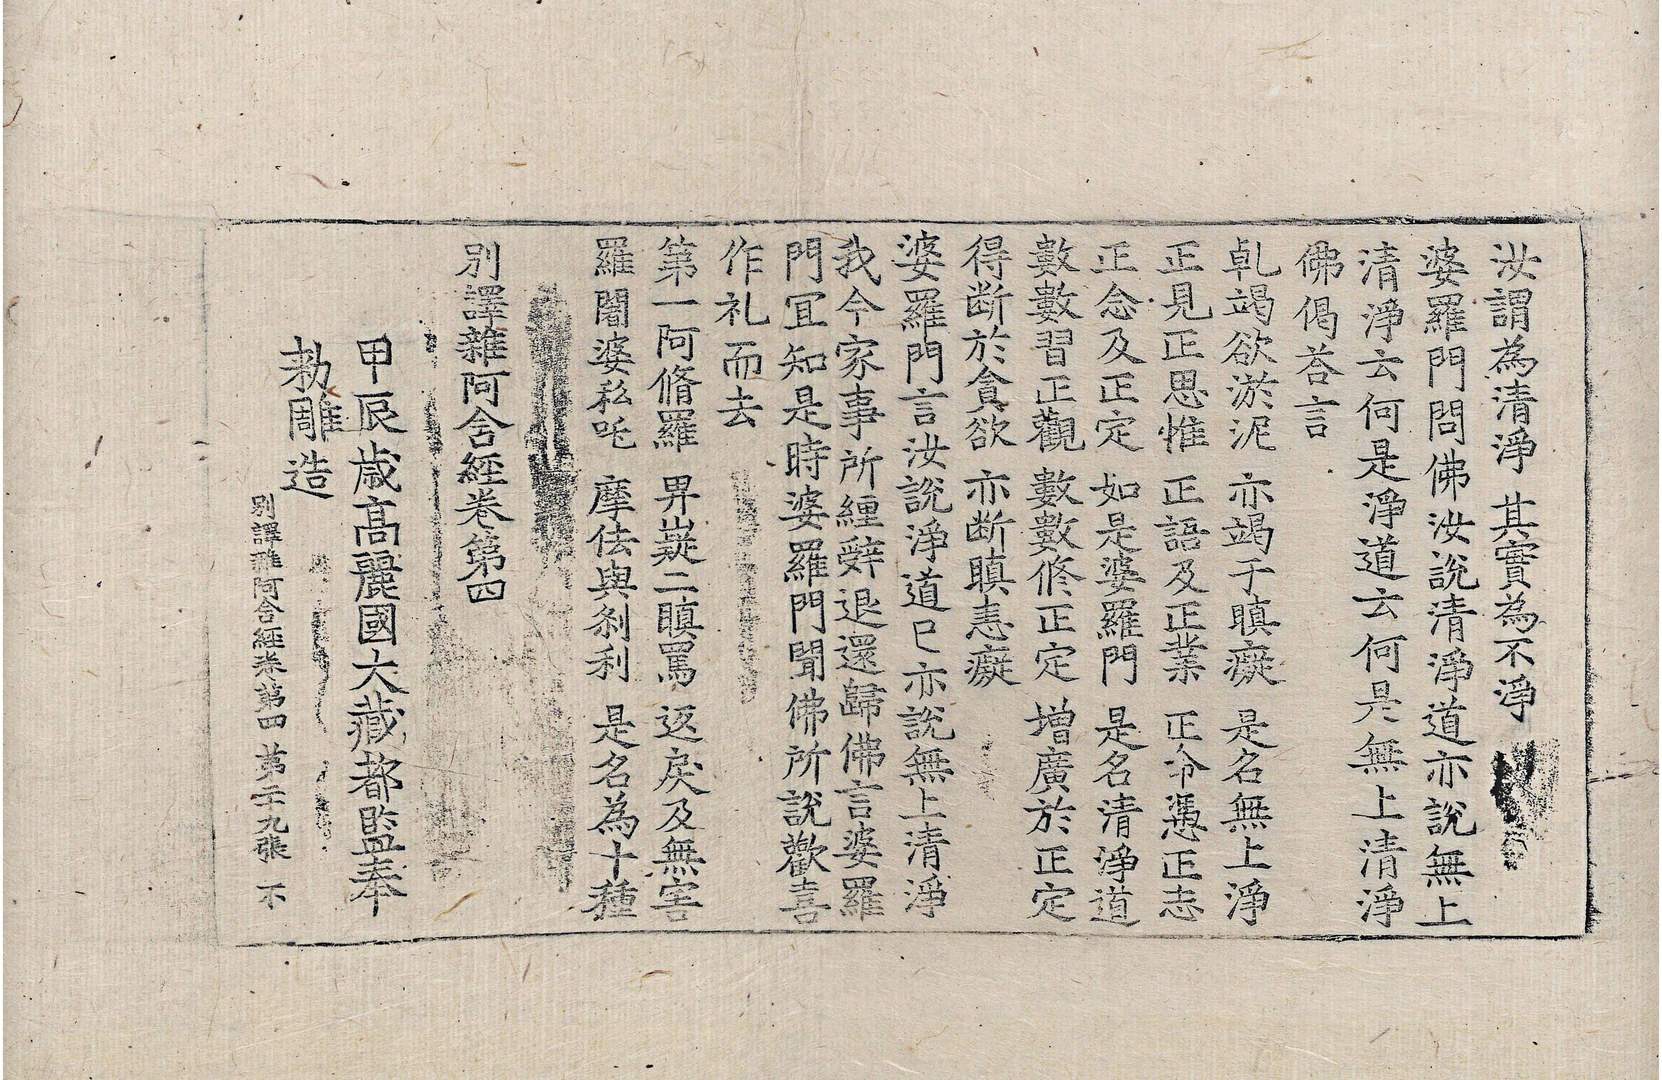 汝謂為清淨 其實為不淨
婆羅門問佛汝說清淨道亦說無上
清淨云何是淨道云何是無上清淨
佛偈荅言
乹竭欲淤泥 亦竭于瞋癡 是名無上淨
正見正思惟 正語及正業 正命憑正志
正念及正定 如是婆羅門 是名清淨道
數數習正觀 數數修正定 增廣於正定
得斷於貪欲 亦斷瞋恚癡
婆羅門言汝說淨道已亦說無上清淨
我今家事所纏辭退還歸佛言婆羅
門冝知是時婆羅門聞佛所說歡喜
作礼而去
第一阿脩羅 畀嶷二瞋罵 返戾及無害
羅闍婆私吒 摩佉與剎利 是名為十種
別譯雜阿含經卷第四
甲辰歲高麗國大藏都監奉
勑雕造
別譯雜阿含經卷第四 第二十九張 不